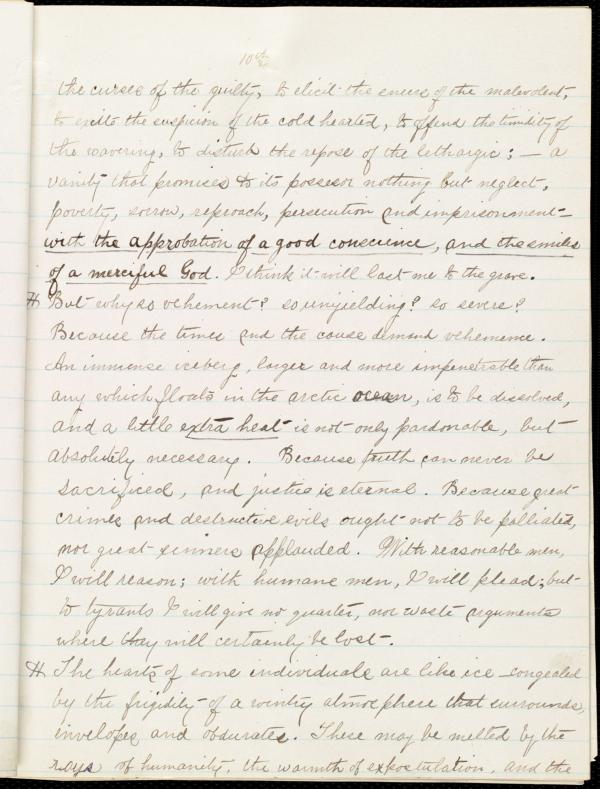 10th
the curses of the guilty, to elicit the sneers of the malevolent,
to excite the suspicion of the cold hearted, to offend the timidity of
the wavering, to disturb the repose of the lethargic; — a
vanity that promises to its possesor nothing but neglect,
poverty, sorrow, reproach, persecution and imprisonment—
with the approbation of a good conscience, and the smiles
of a merciful God. I think it will last me to the grave.
But why so vehement? so unyielding? so severe?
Because the times and the cause demand vehemence.
An immense iceberg, larger and more impenetrable than
any which floats in the arctic ocean, is to be dissolved,
and a little extra heat is not only pardonable, but
absolutely necessary. Because truth can never be
sacrificed, and justice is eternal. Because great
crimes and destructive evils ought not to be palliated,
nor great sinners applauded. With reasonable men,
I will reason; with humane men, I will plead; but
to tyrants I will give no quarter, nor waste arguments
where they will certainly be lost.
The hearts of some individuals are like ice congealed
by the frigidity of a wintry atmosphere that surrounds,
invelopes and obdurates. These may be melted by the
rays of humanity, the warmth of expostulation, and the